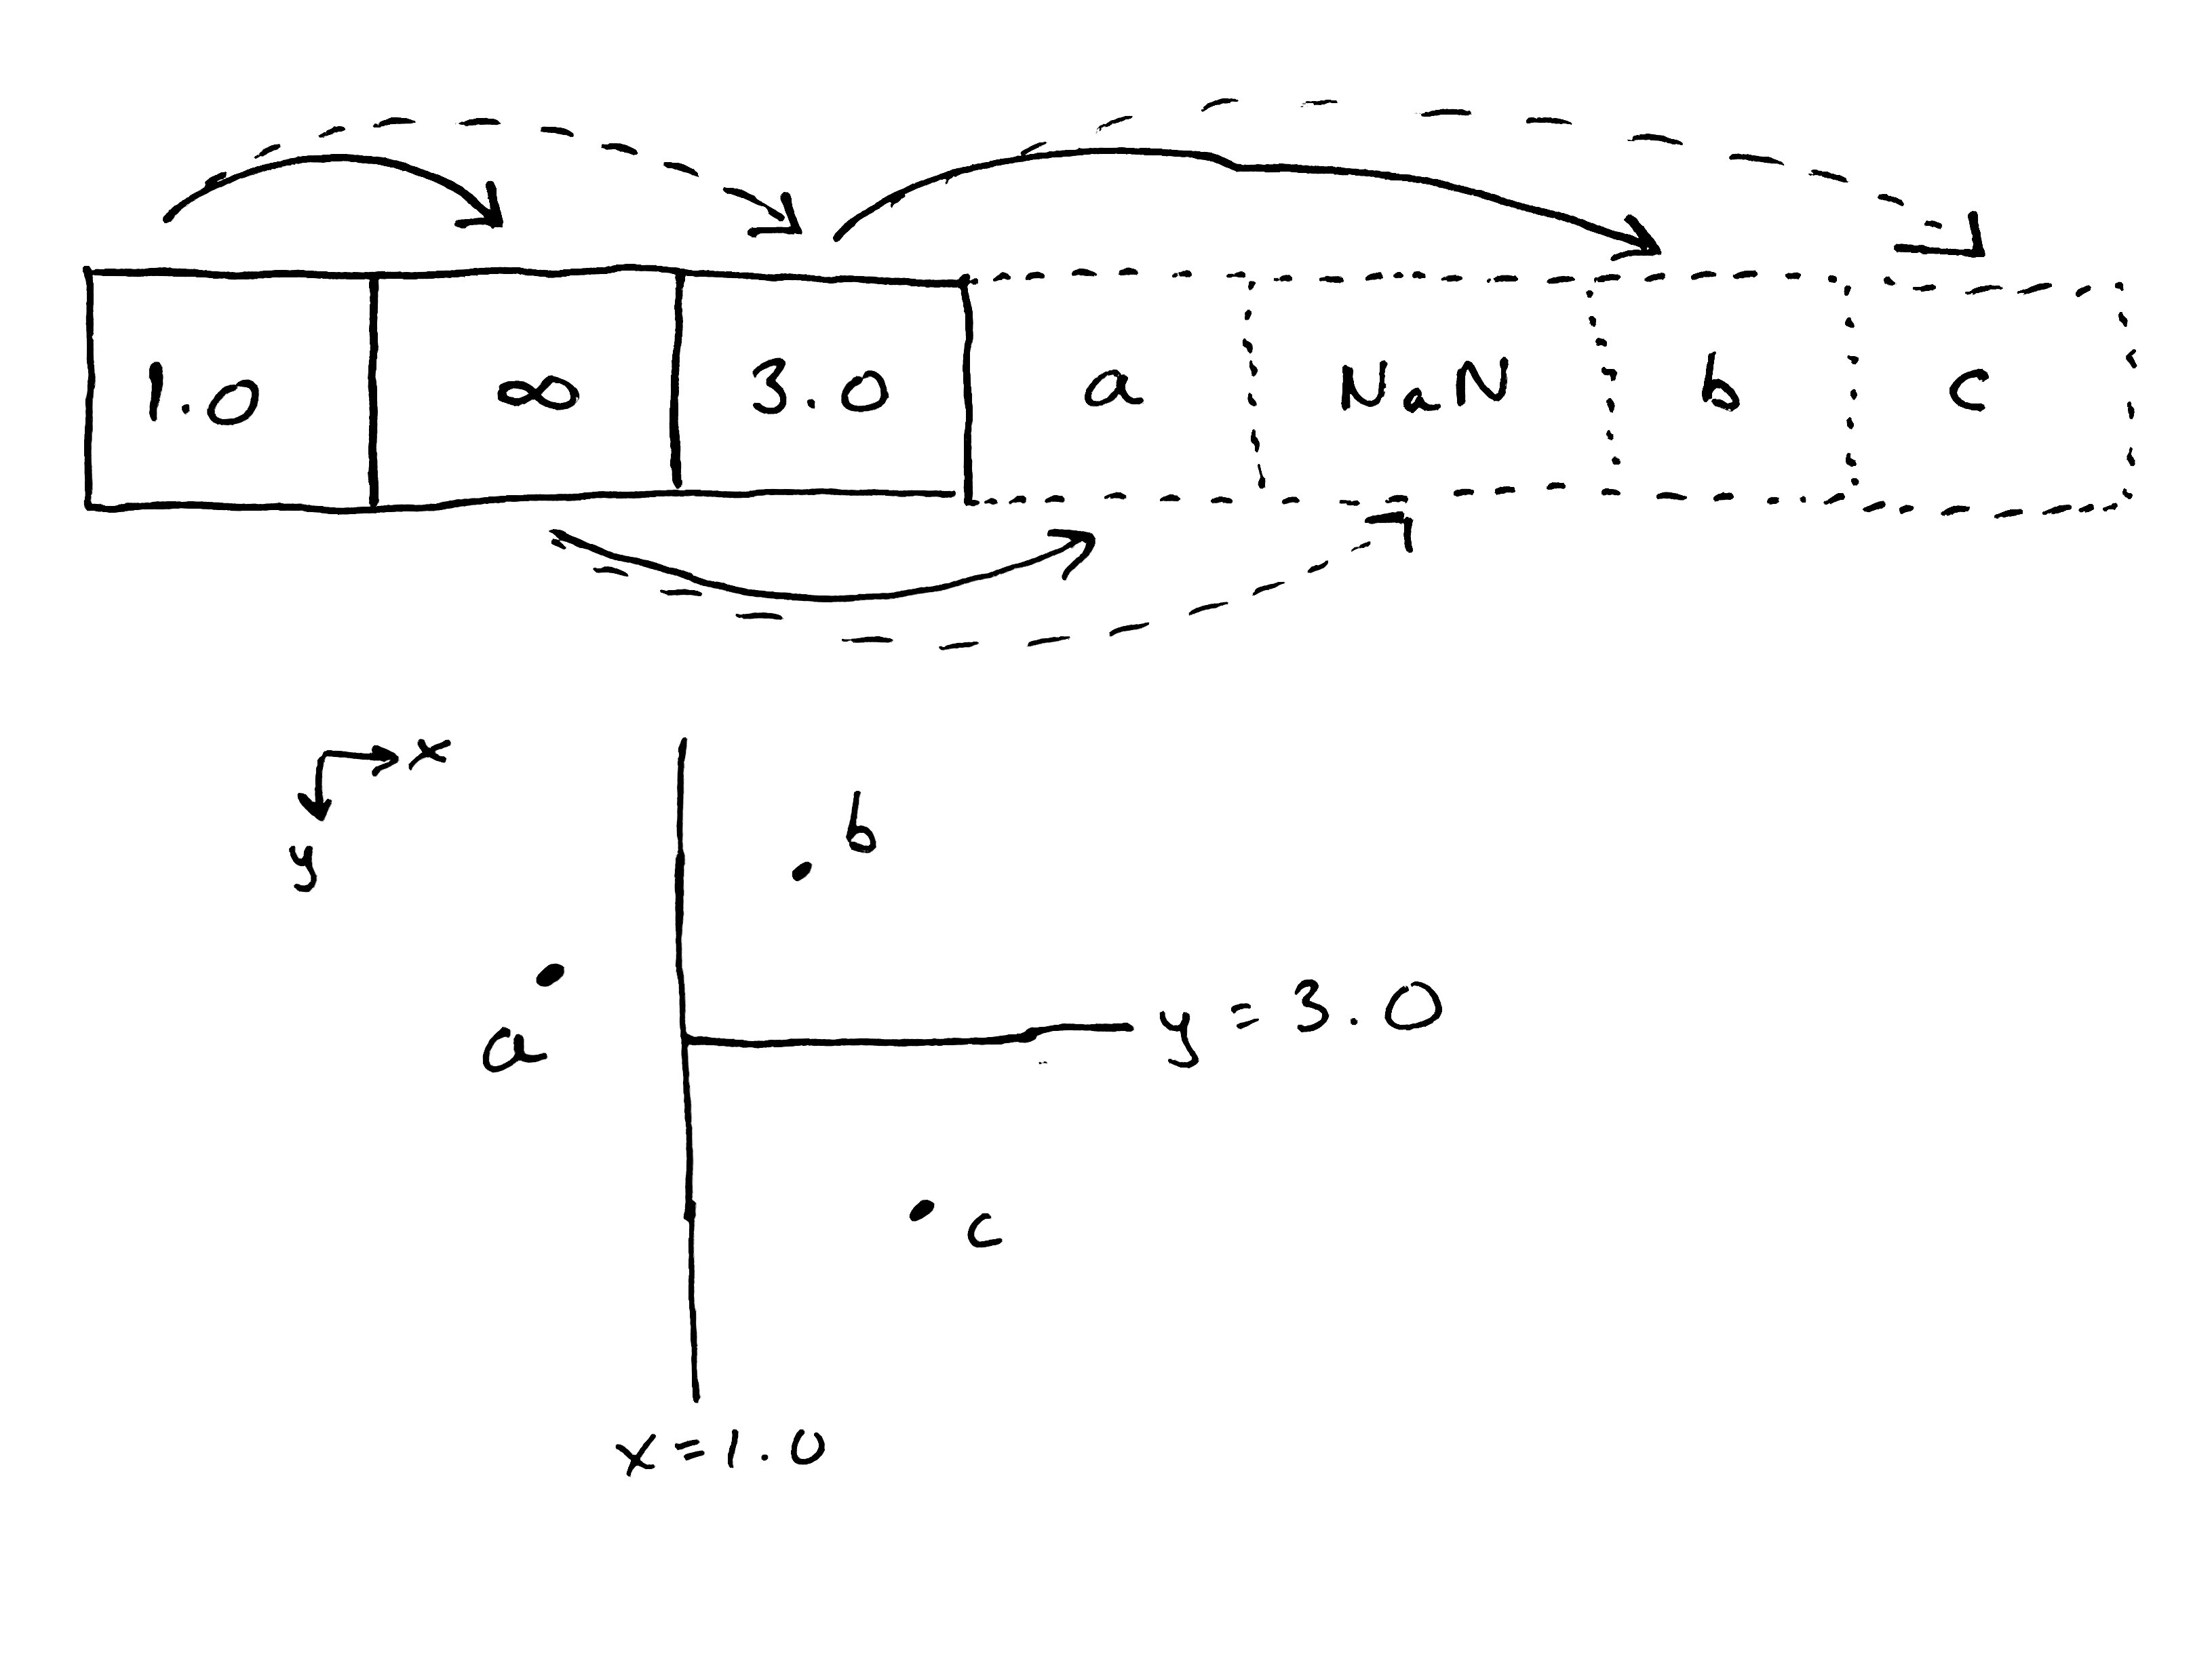 1.0 ∞ 3.0 a NaN b c
x
y
b
a
y = 3.0
c
x = 1.0